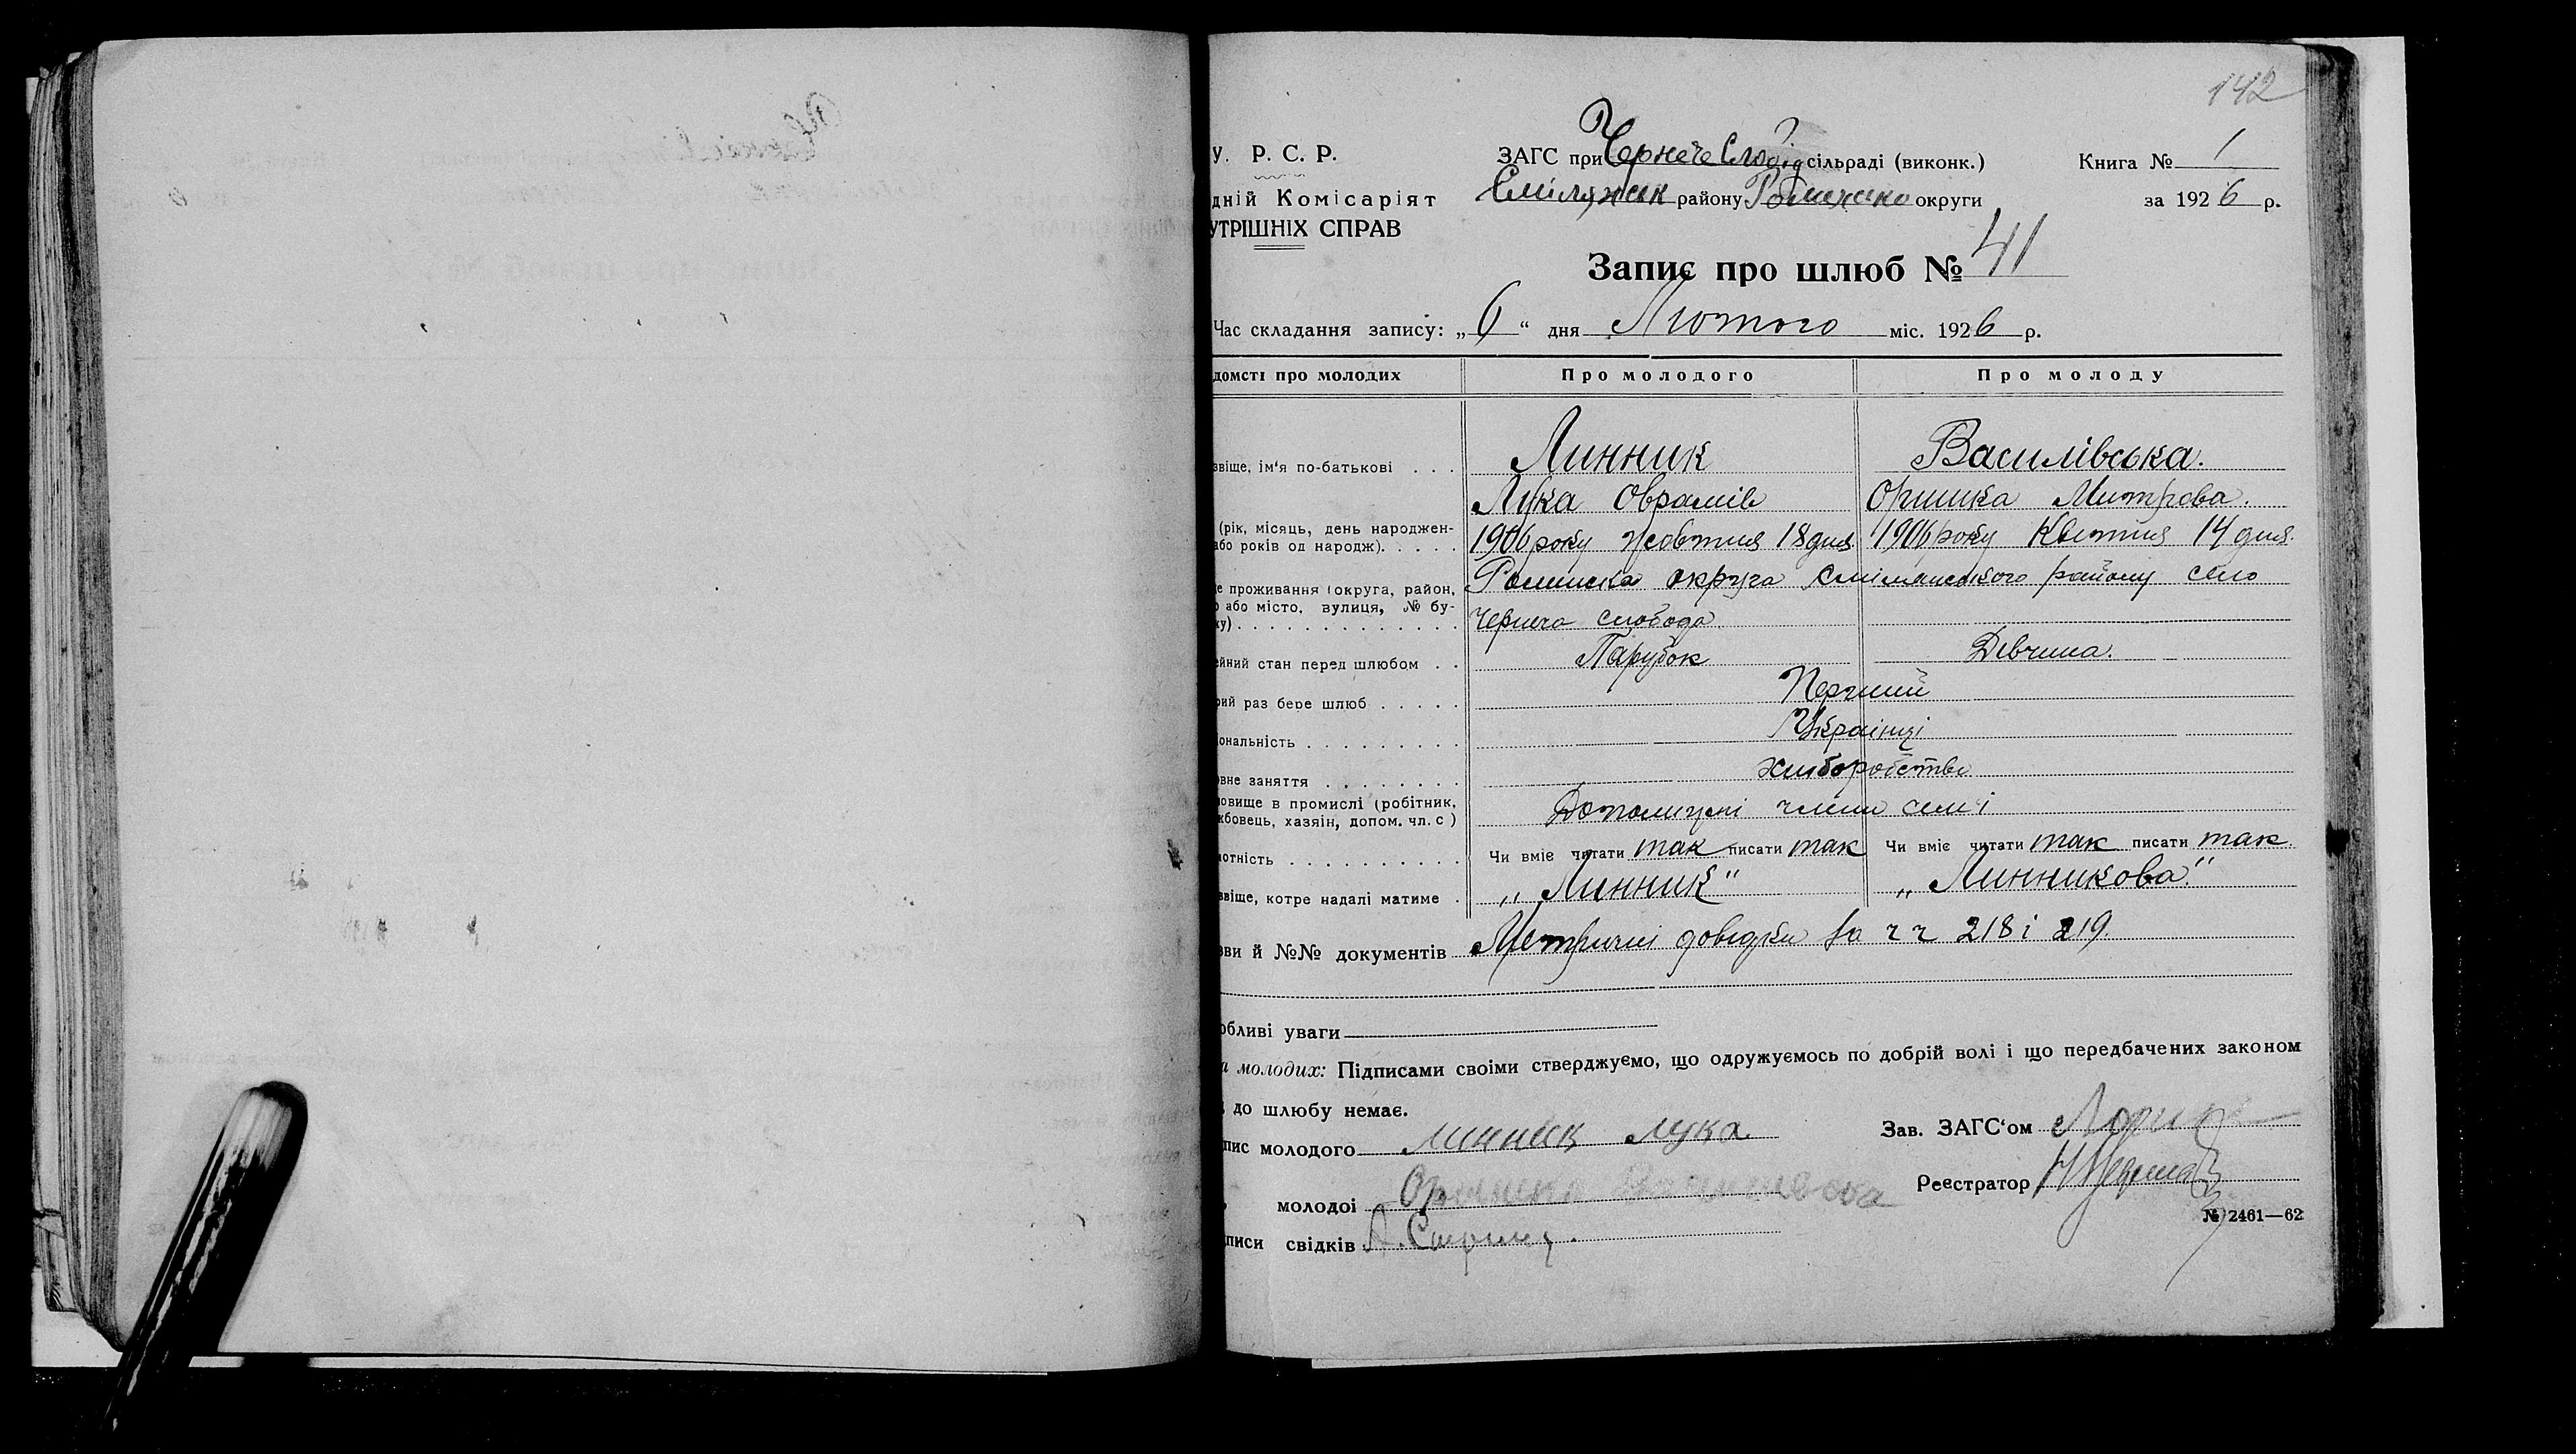 142
У. Р. С. Р.
ЗАГС при Чернече Слобід сільраді (виконк.)
Книга № 1
дній Комісаріят
Смілянськ району Роменсько округи
за 1926 р.
УТРІШНІХ СПРАВ
Запис про шлюб № 41
Час складання запису: „6“ дня Лютого міс. 1926 р.
домсті про молодих Про молодого Про молоду
звіще, ім'я по-батькові . . . Линник Василівська.
Лука Оврамів Оришка Митрова.
(рік, місяць, день народжен-
або років од народж). . . . . 1906 року Жовтня 18 дня 1906 року Квітня 14 дня.
е проживання (округа, район, Роменська округа Смілянського району село
о або місто, вулиця, № бу-
ку) . . . . . . . . . . . . . Чернеча слобода
ейний стан перед шлюбом . . Парубок Дівчина.
рий раз бере шлюб . . . . . Перший
іональність . . . . . . . . . Українці
вне заняття . . . . . . . . Хліборобство
новище в промислі (робітник,
жбовець, хазяін, допом. чл. с) Допомічні члени семі
мотність . . . . . . . . . . Чи вміє читати так писати так Чи вміє читати так писати так.
звіще, котре надалі матиме . „Линник“ „Линникова“.
зви й №№ документів Метричні довідки за чч 218 і 219.
обливі уваги
а молодих: Підписами своіми стверджуємо, що одружуємось по добрій волі і що передбачених законом
до шлюбу немає.
пис молодого Линник Лука
Зав. ЗАГС'ом
молодоі Оришка Василивска
Реєстратор
№ 2461—62
писи свідків А.